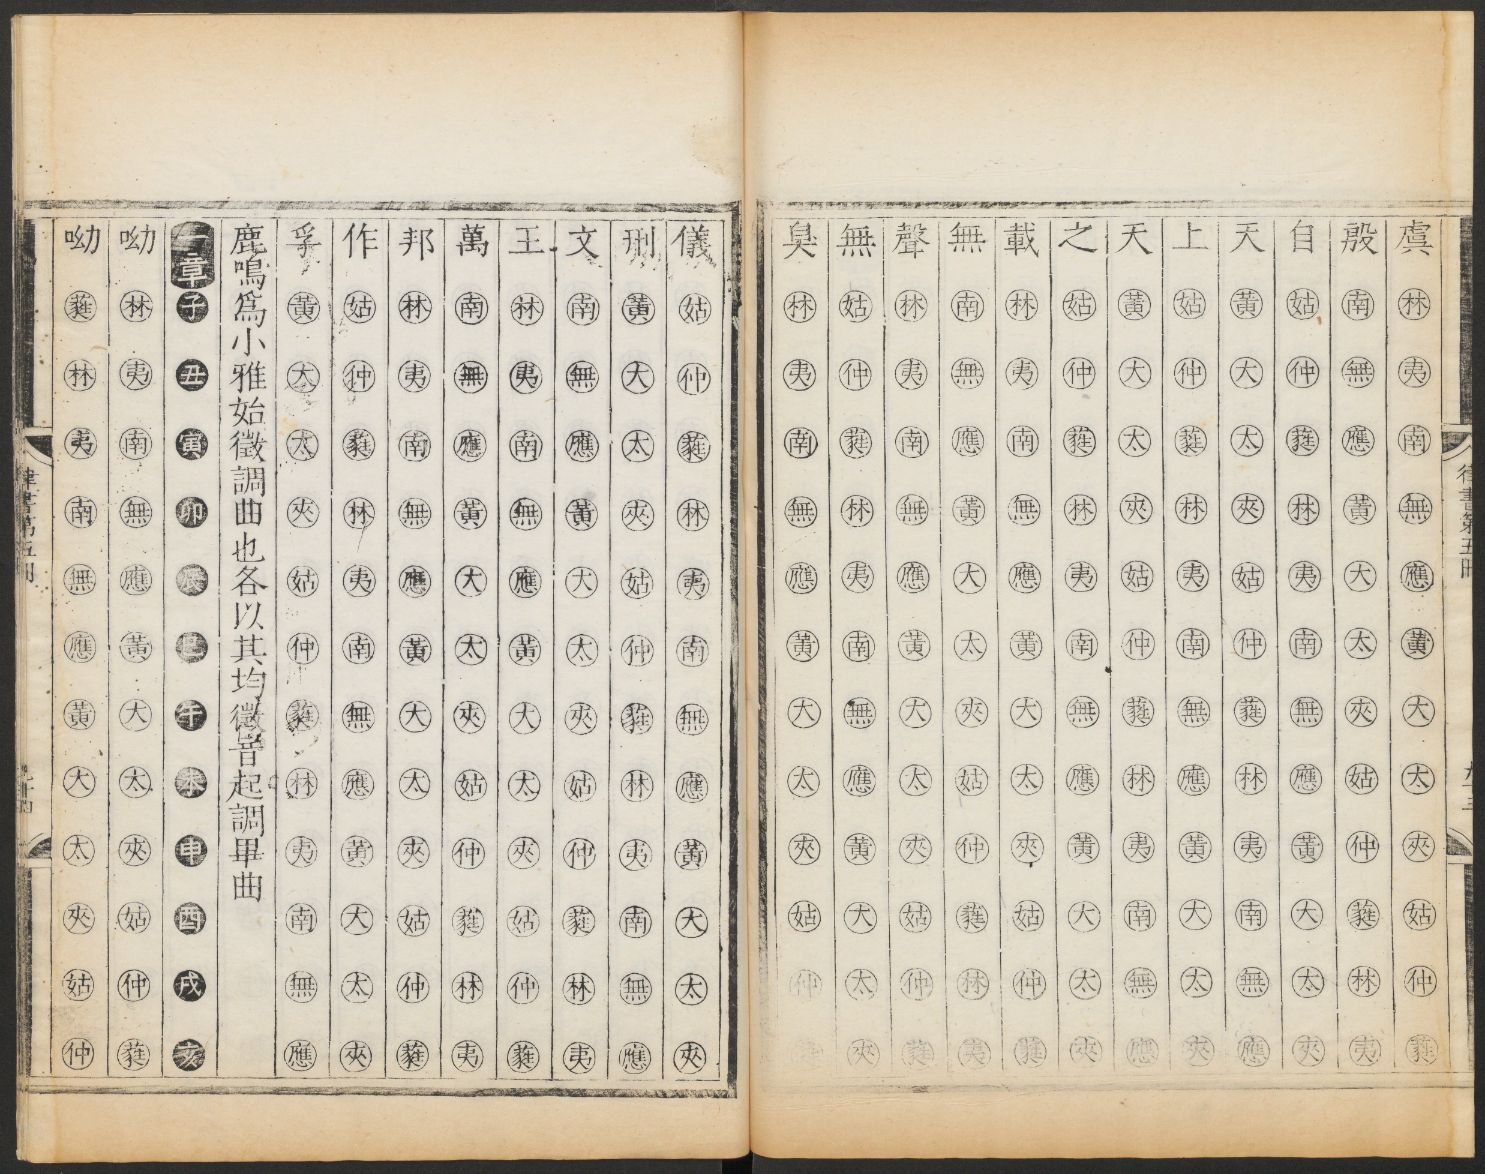 律書第五冊
虞林夷南無應黃大太夾姑仲蕤
殷南無應黃大太夾姑仲蕤林夷
自姑仲蕤林夷南無應黃大太夾
天黃大太夾姑仲蕤林夷南無應
上姑仲蕤林夷南無應黃大太夾
天黃大太夾姑仲蕤林夷南無應
之姑仲蕤林夷南無應黃大太夾
載林夷南無應黃大太夾姑仲蕤
無南無應黃大太夾姑仲蕤林夷
聲林夷南無應黃大太夾姑仲蕤
無姑仲蕤林夷南無應黃大太夾
臭林夷南無應黃大太夾姑仲
儀姑仲蕤林夷南無應黃大太夾
刑黃大太夾姑仲蕤林夷南無應
文南無應黃大太夾姑仲蕤林夷
王林夷南無應黃大太夾姑仲蕤
萬南無應黃大太夾姑仲蕤林夷
邦林夷南無應黃大太夾姑仲蕤
作姑仲蕤林夷南無應黃大太夾
孚黃大太夾姑仲蕤林夷南無應
鹿鳴為小雅始徵調曲也各以其均徵音起調畢曲
一章子丑寅卯辰巳午未申酉戌亥
呦林夷南無應黃大太夾姑仲蕤
呦蕤林夷南無應黃大太夾姑仲
律書第五